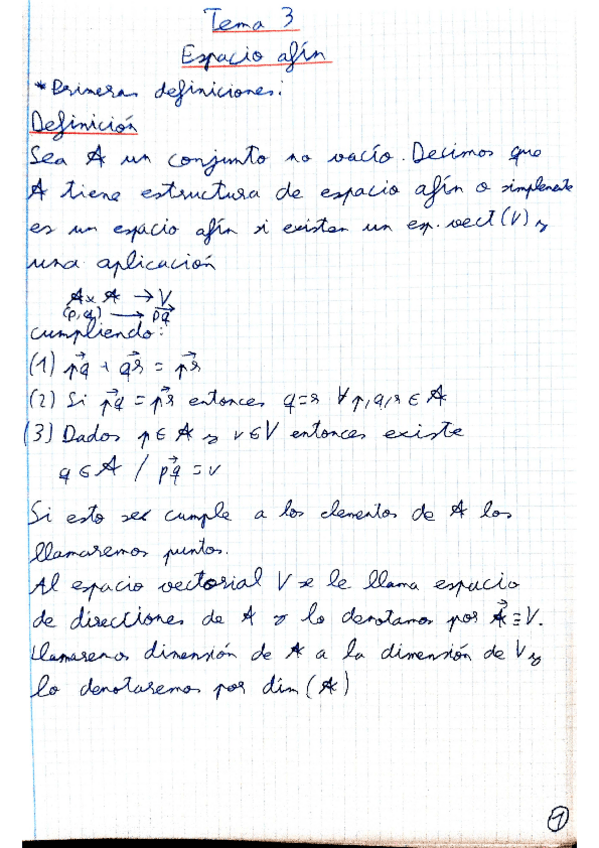 Tema 3
Espacio afín
* Primeras definiciones:
Definición
Sea A un conjunto no vacío. Decimos que
A tiene estructura de espacio afín o simplemente
es un espacio afín si existen un esp. vect (V) y
una aplicación
A x A → V
(p,q) → p⃗q
cumpliendo:
(1) p⃗q + q⃗r = p⃗r
(2) Si p⃗q = p⃗r entonces q=r ∀ p,q,r ∈ A
(3) Dados p ∈ A y v ∈ V entonces existe
q ∈ A / p⃗q = v
Si esto se cumple a los elementos de A los
llamaremos puntos.
Al espacio vectorial V se le llama espacio
de direcciones de A y lo denotamos por A⃗ ≡ V.
Llamaremos dimensión de A a la dimensión de V y
lo denotaremos por dim (A)
1